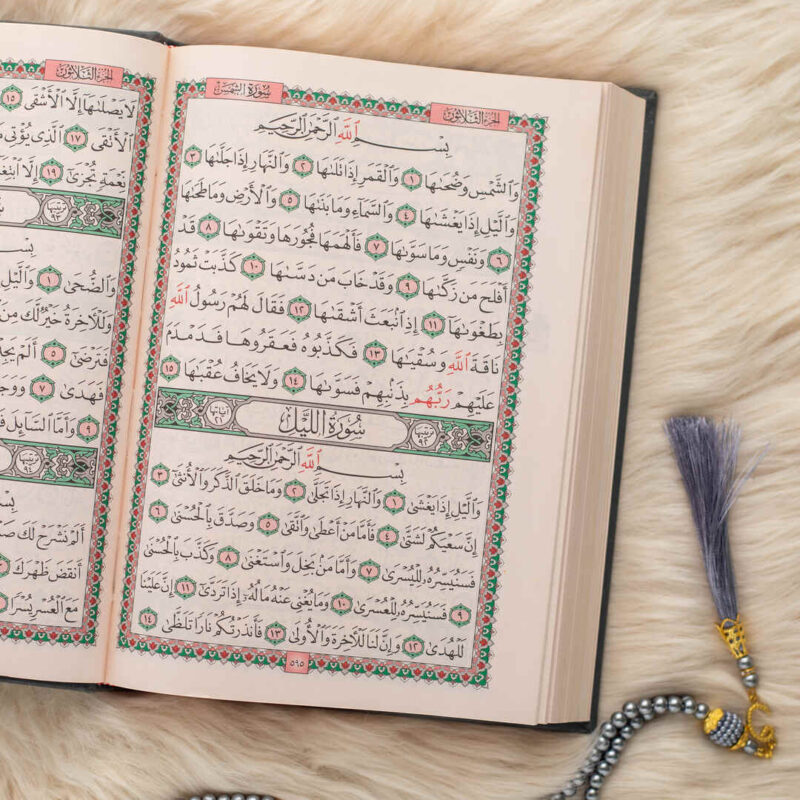 الجزء الثلاثون
سورة الشمس
بِسْمِ اللَّهِ الرَّحْمَٰنِ الرَّحِيمِ
وَالشَّمْسِ وَضُحَىٰهَا ١ وَالْقَمَرِ إِذَا تَلَىٰهَا ٢ وَالنَّهَارِ إِذَا جَلَّىٰهَا ٣
وَالَّيْلِ إِذَا يَغْشَىٰهَا ٤ وَالسَّمَآءِ وَمَا بَنَىٰهَا ٥ وَالْأَرْضِ وَمَا طَحَىٰهَا
٦ وَنَفْسٍ وَمَا سَوَّىٰهَا ٧ فَأَلْهَمَهَا فُجُورَهَا وَتَقْوَىٰهَا ٨ قَدْ
أَفْلَحَ مَن زَكَّىٰهَا ٩ وَقَدْ خَابَ مَن دَسَّىٰهَا ١٠ كَذَّبَتْ ثَمُودُ
بِطَغْوَىٰهَآ ١١ إِذِ انۢبَعَثَ أَشْقَىٰهَا ١٢ فَقَالَ لَهُمْ رَسُولُ اللَّهِ
نَاقَةَ اللَّهِ وَسُقْيَىٰهَا ١٣ فَكَذَّبُوهُ فَعَقَرُوهَا فَدَمْدَمَ
عَلَيْهِمْ رَبُّهُم بِذَنۢبِهِمْ فَسَوَّىٰهَا ١٤ وَلَا يَخَافُ عُقْبَىٰهَا ١٥
ترتيبها ٩٢ سُورَةُ اللَّيْلِ آياتها ٢١
بِسْمِ اللَّهِ الرَّحْمَٰنِ الرَّحِيمِ
وَالَّيْلِ إِذَا يَغْشَىٰ ١ وَالنَّهَارِ إِذَا تَجَلَّىٰ ٢ وَمَا خَلَقَ الذَّكَرَ وَالْأُنثَىٰٓ ٣
إِنَّ سَعْيَكُمْ لَشَتَّىٰ ٤ فَأَمَّا مَنْ أَعْطَىٰ وَاتَّقَىٰ ٥ وَصَدَّقَ بِالْحُسْنَىٰ ٦
فَسَنُيَسِّرُهُۥ لِلْيُسْرَىٰ ٧ وَأَمَّا مَنۢ بَخِلَ وَاسْتَغْنَىٰ ٨ وَكَذَّبَ بِالْحُسْنَىٰ
٩ فَسَنُيَسِّرُهُۥ لِلْعُسْرَىٰ ١٠ وَمَا يُغْنِي عَنْهُ مَالُهُۥٓ إِذَا تَرَدَّىٰٓ ١١ إِنَّ عَلَيْنَا
لَلْهُدَىٰ ١٢ وَإِنَّ لَنَا لَلْآخِرَةَ وَالْأُولَىٰ ١٣ فَأَنذَرْتُكُمْ نَارًا تَلَظَّىٰ ١٤
٥٩٥
الجزء الثلاثون
لَا يَصْلَىٰهَآ إِلَّا الْأَشْقَى ١٥
الْأَتْقَى ١٧ الَّذِي يُؤْتِي
نِّعْمَةٍ تُجْزَىٰٓ ١٩ إِلَّا
ترتيبها ٩٣
بِسْمِ
وَالضُّحَىٰ ١ وَالَّيْلِ
وَلَلْآخِرَةُ خَيْرٌ لَّكَ مِنَ
فَتَرْضَىٰٓ ٥ أَلَمْ
فَهَدَىٰ ٧
٩ وَأَمَّا السَّآئِلَ
ترتيبها ٩٤
بِسْمِ
أَلَمْ نَشْرَحْ لَكَ
أَنقَضَ ظَهْرَكَ
مَعَ الْعُسْرِ يُسْرًا